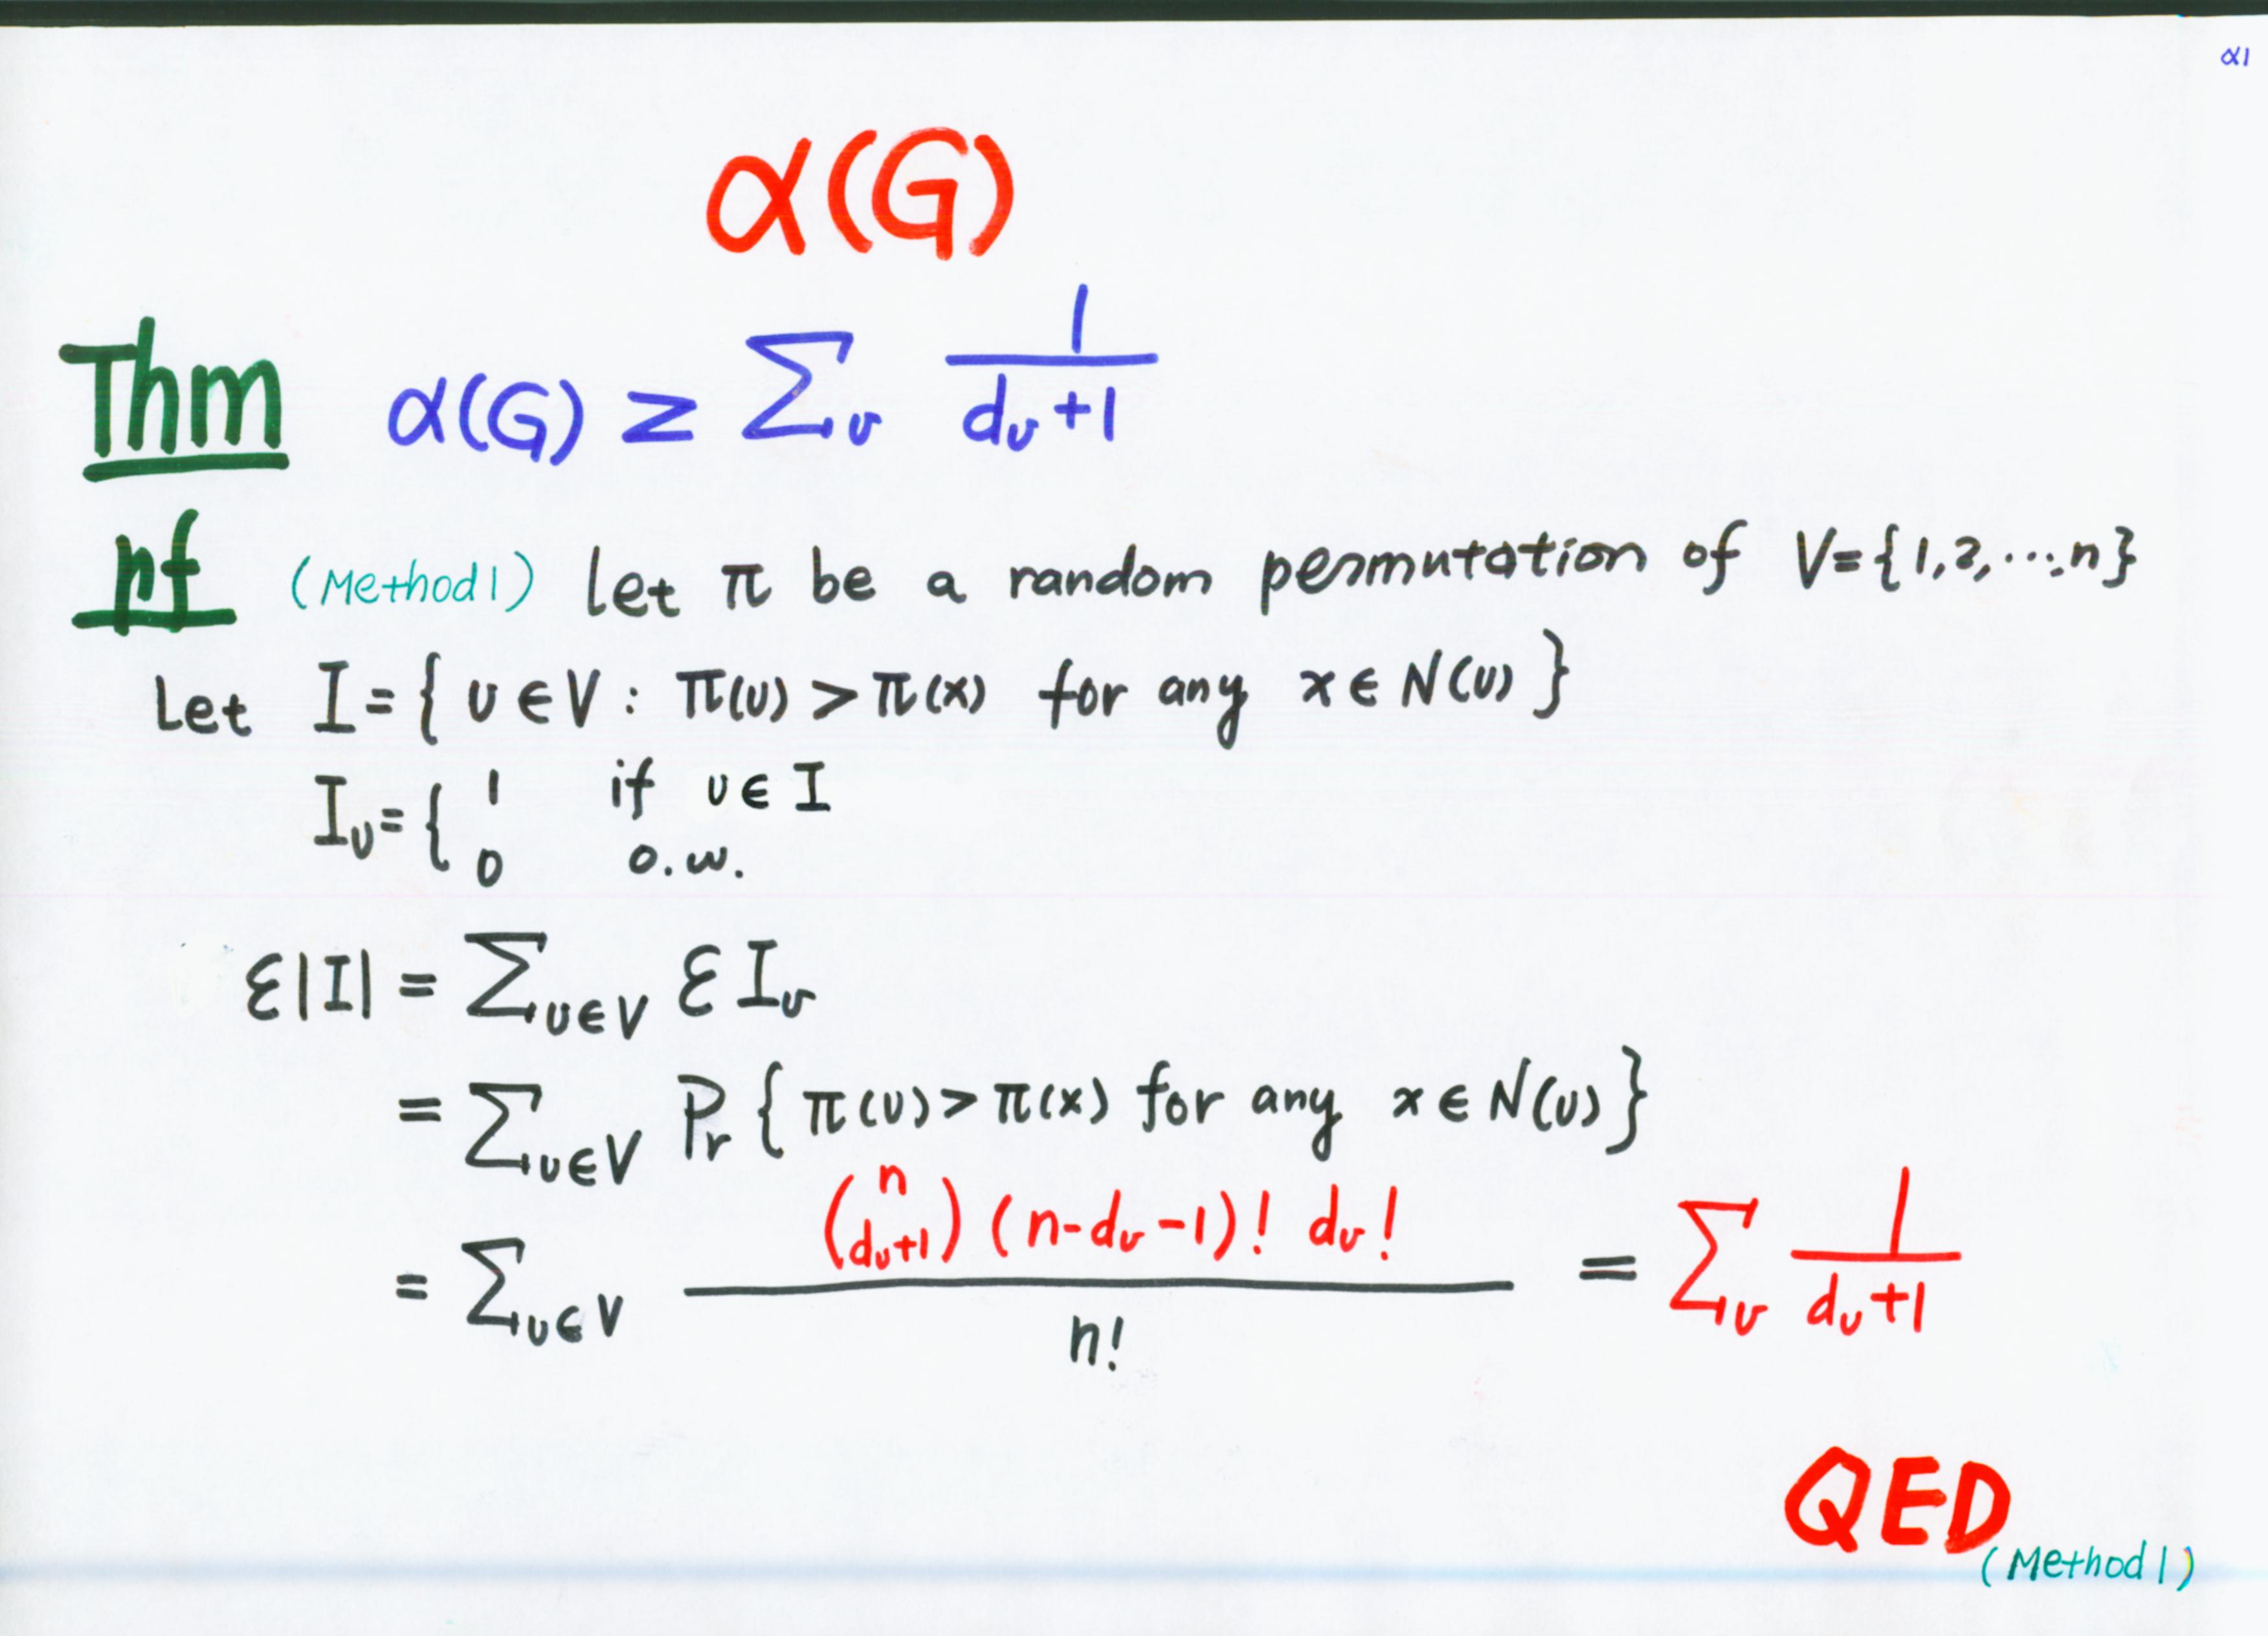 α1
α(G)
Thm α(G) ≥ ∑_v 1/(d_v+1)
pf (Method 1) Let π be a random permutation of V={1,2,⋯,n}
Let I = { v ∈ V : π(v) > π(x) for any x ∈ N(v) }
I_v = { 1 if v ∈ I
0 o.w.
ℰ|I| = ∑_{v∈V} ℰ I_v
= ∑_{v∈V} Pr { π(v) > π(x) for any x ∈ N(v) }
= ∑_{v∈V} (n d_v+1) (n-d_v-1)! d_v! / n! = ∑_v 1/(d_v+1)
QED (Method 1)